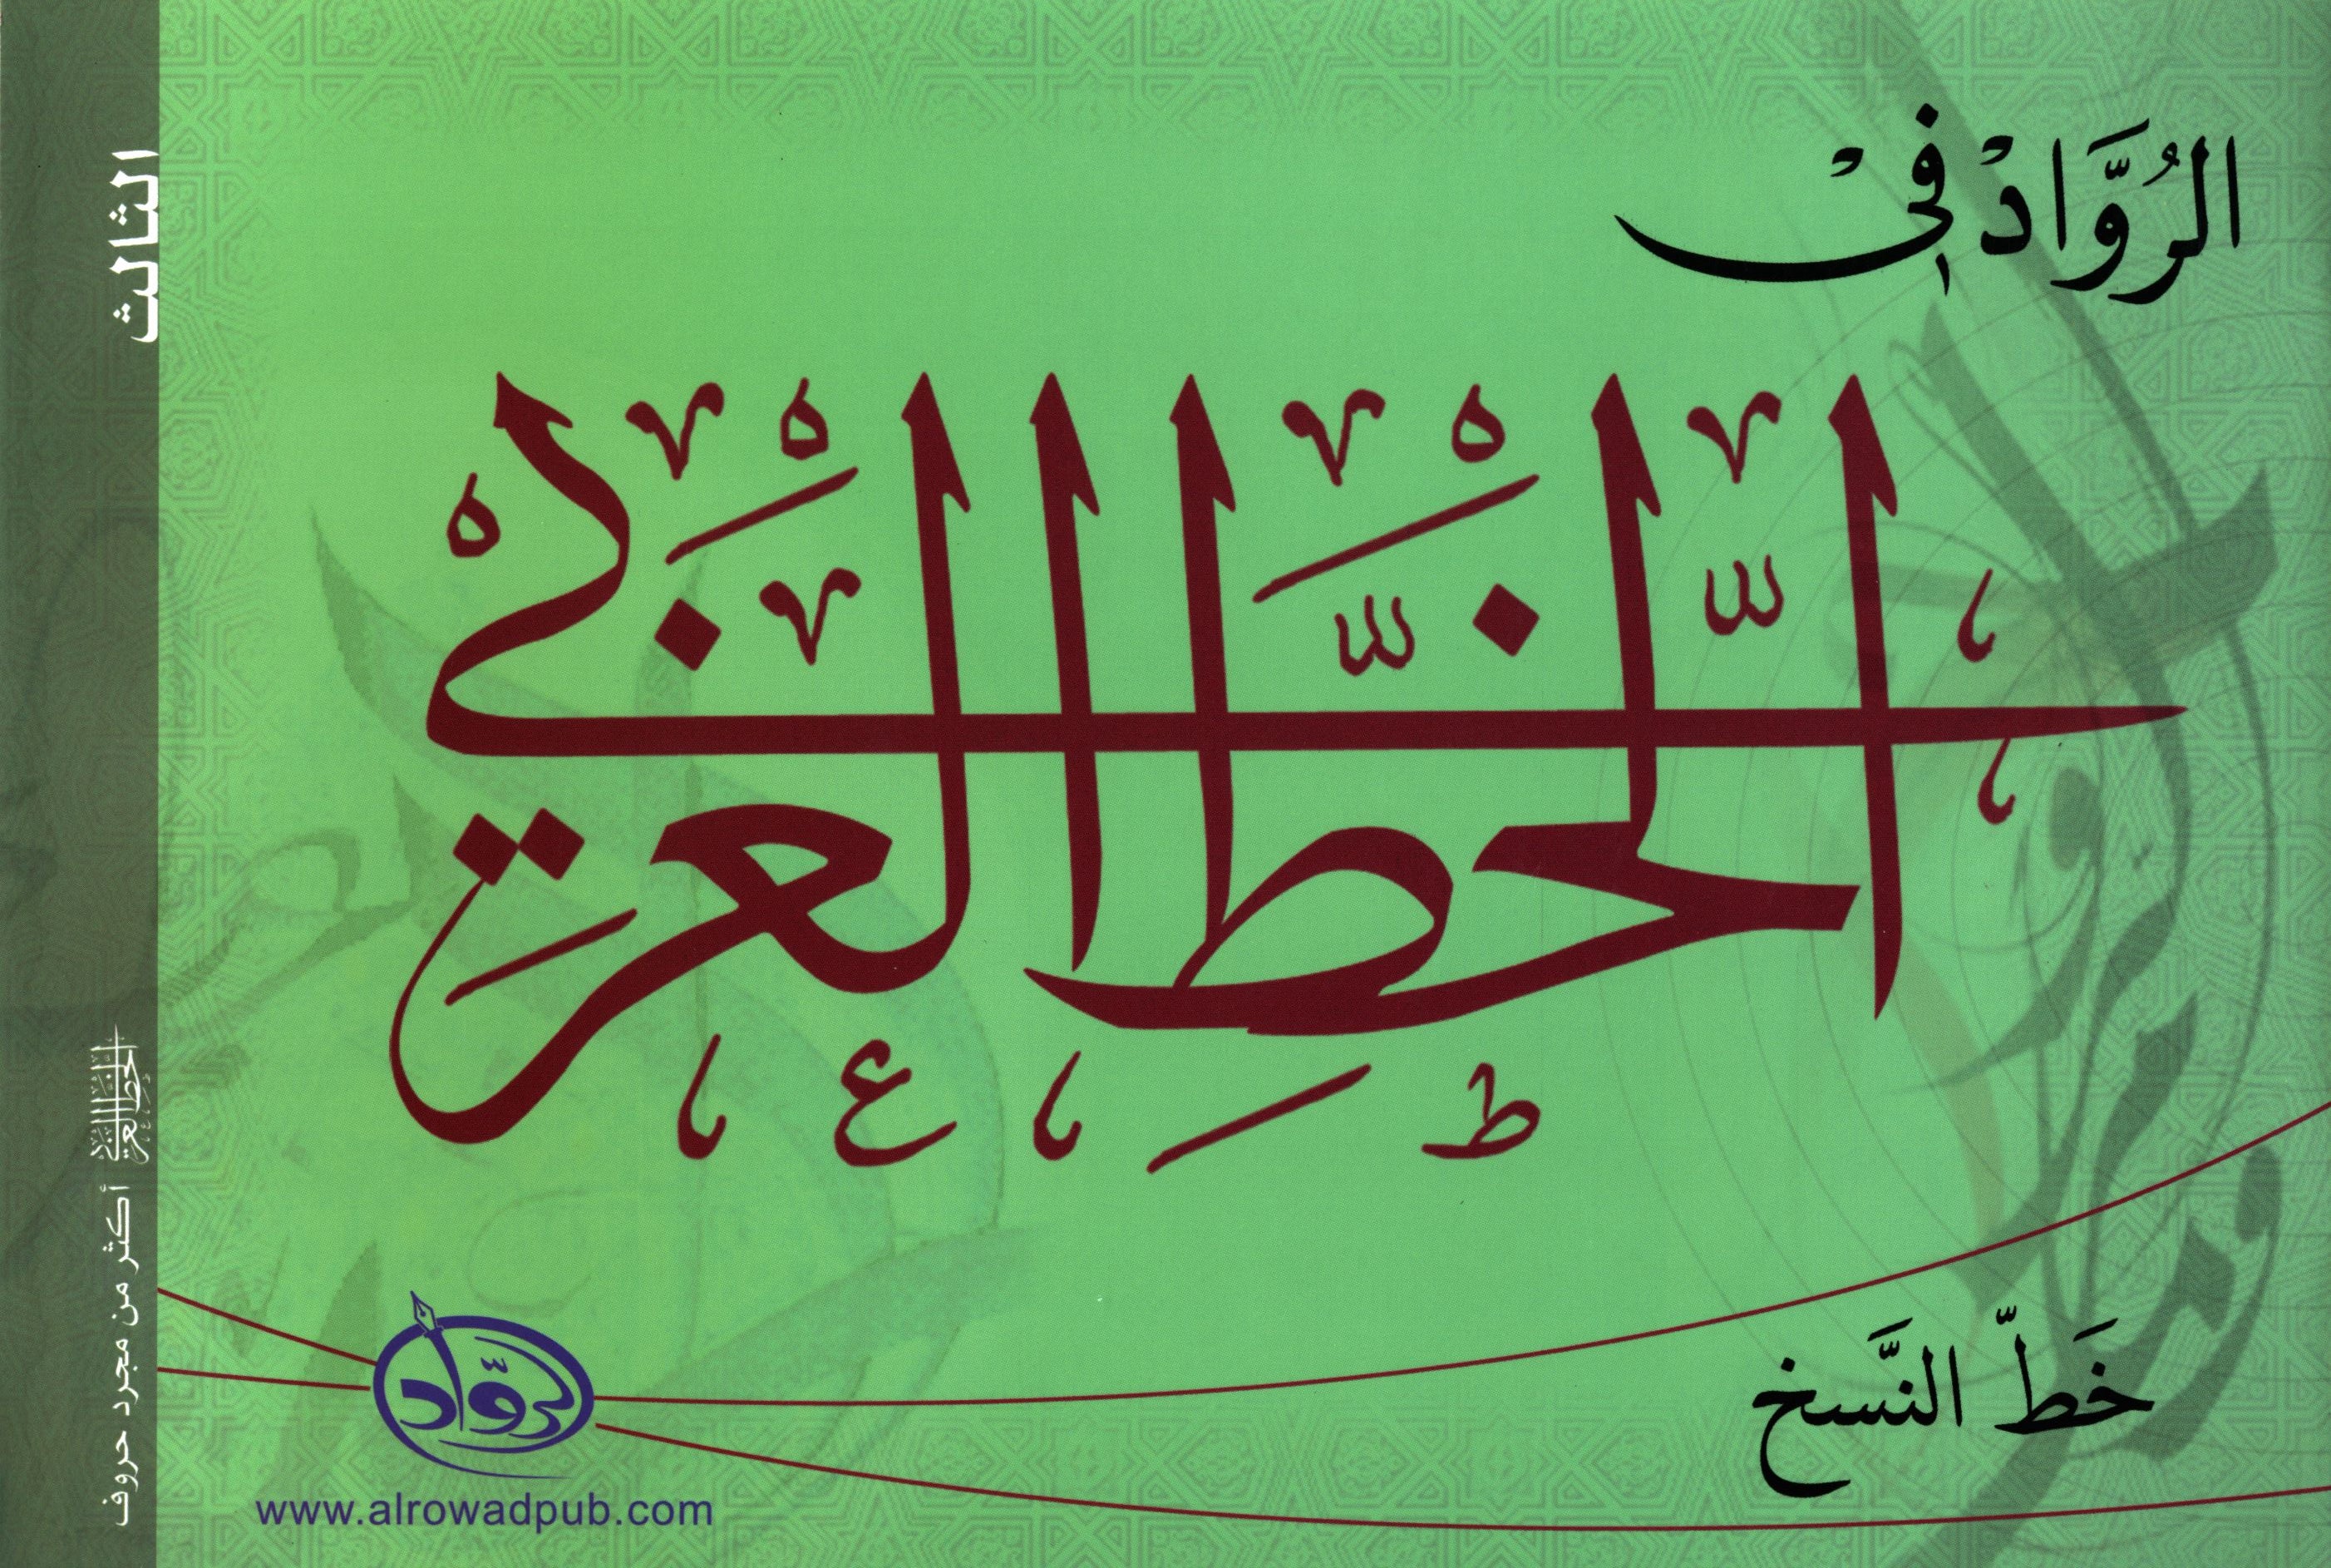 الرُوَّادْ فِيْ
الخَطِّ العَرَبيْ
خَطّ النَّسخ
روّاد
www.alrowadpub.com
الثالث
الخط العربي أكثر من مجرد حروف